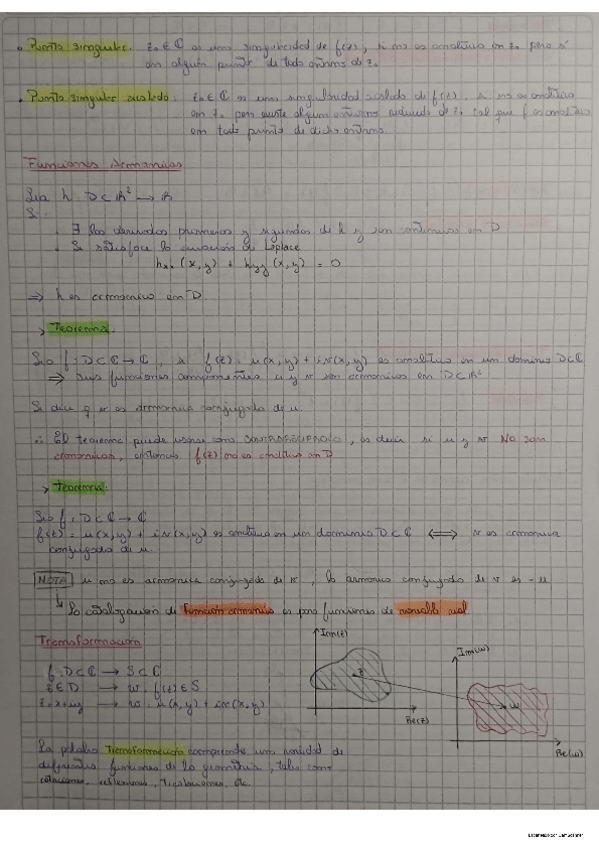 • Punto singular. z₀ ∈ ℂ es una singularidad de f(z), si no es analítica en z₀ pero sí
en algún punto de todo entorno de z₀.
• Punto singular aislado: z₀ ∈ ℂ es una singularidad aislada de f(z), si no es analítica
en z₀ pero existe algún entorno reducido de z₀ tal que f es analítica
en todo punto de dicho entorno.
Funciones Armónicas
Sea h: D ⊂ ℝ² → ℝ
Si:
• ∃ las derivadas primeras y segundas de h y son continuas en D
• Se satisface la ecuación de Laplace
hxx(x,y) + hyy(x,y) = 0
⇒ h es armónica en D
> Teorema:
Sea f: D ⊂ ℂ → ℂ, si f(z) = u(x,y) + iv(x,y) es analítica en un dominio D ⊂ ℂ
⇒ sus funciones componentes u y v son armónicas en D ⊂ ℝ²
Se dice q v es armónica conjugada de u.
∴ El teorema puede usarse como CONTRARRECÍPROCO, es decir si u y v NO son
armónicas, entonces f(z) no es analítica en D
> Teorema:
Sea f: D ⊂ ℂ → ℂ
f(z) = u(x,y) + iv(x,y) es analítica en un dominio D ⊂ ℂ ⟺ v es armónica
conjugada de u.
NOTA u no es armónica conjugada de v, la armónica conjugada de v es -u
↳ La catalogación de función armónica es para funciones de variable real
Transformación
f: D ⊂ ℂ → S ⊂ ℂ
z ∈ D → w = f(z) ∈ S
z = x+iy → w = u(x,y) + iv(x,y)
Im(z)
z
Re(z)
Im(w)
w
Re(w)
La palabra Transformación comprende una variedad de
diferentes funciones de la geometría, tales como
rotaciones, reflexiones, traslaciones, etc.